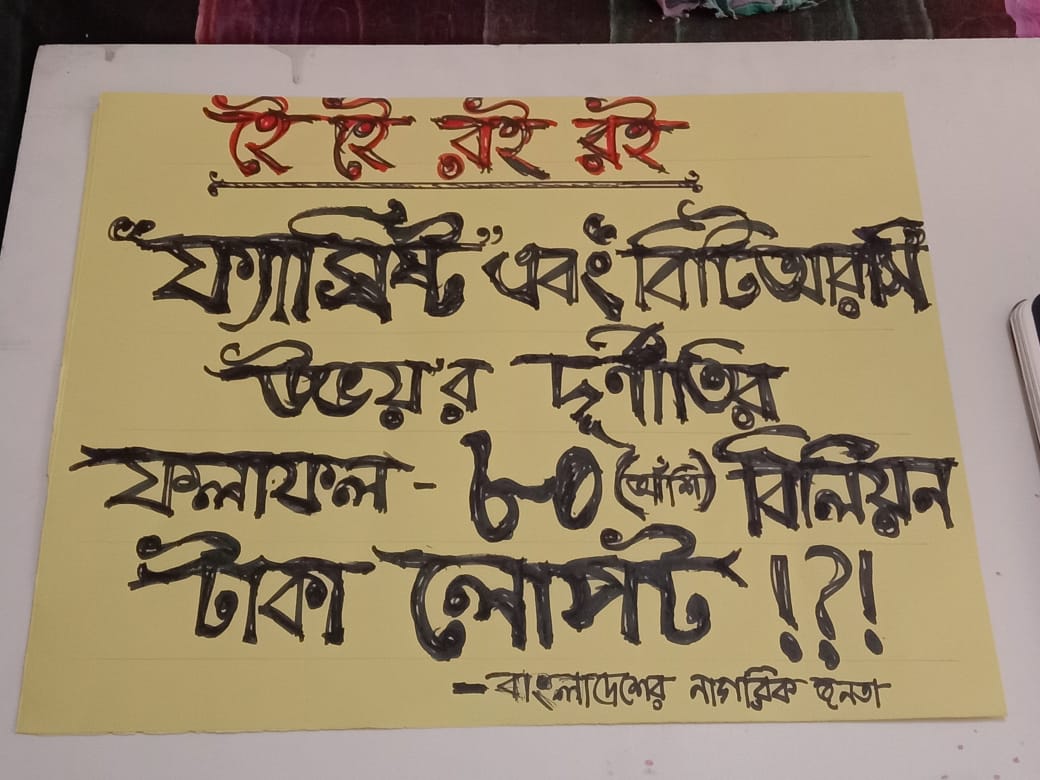 হৈ হৈ রই রই
"ফ্যাসিষ্ট" এবং বিটিআরসি
উভয়'র দূর্ণীতির
ফলাফল - ৮০ (আঁশি) বিলিয়ন
টাকা লোপট !?!
- বাংলাদেশের নাগরিক জনতা